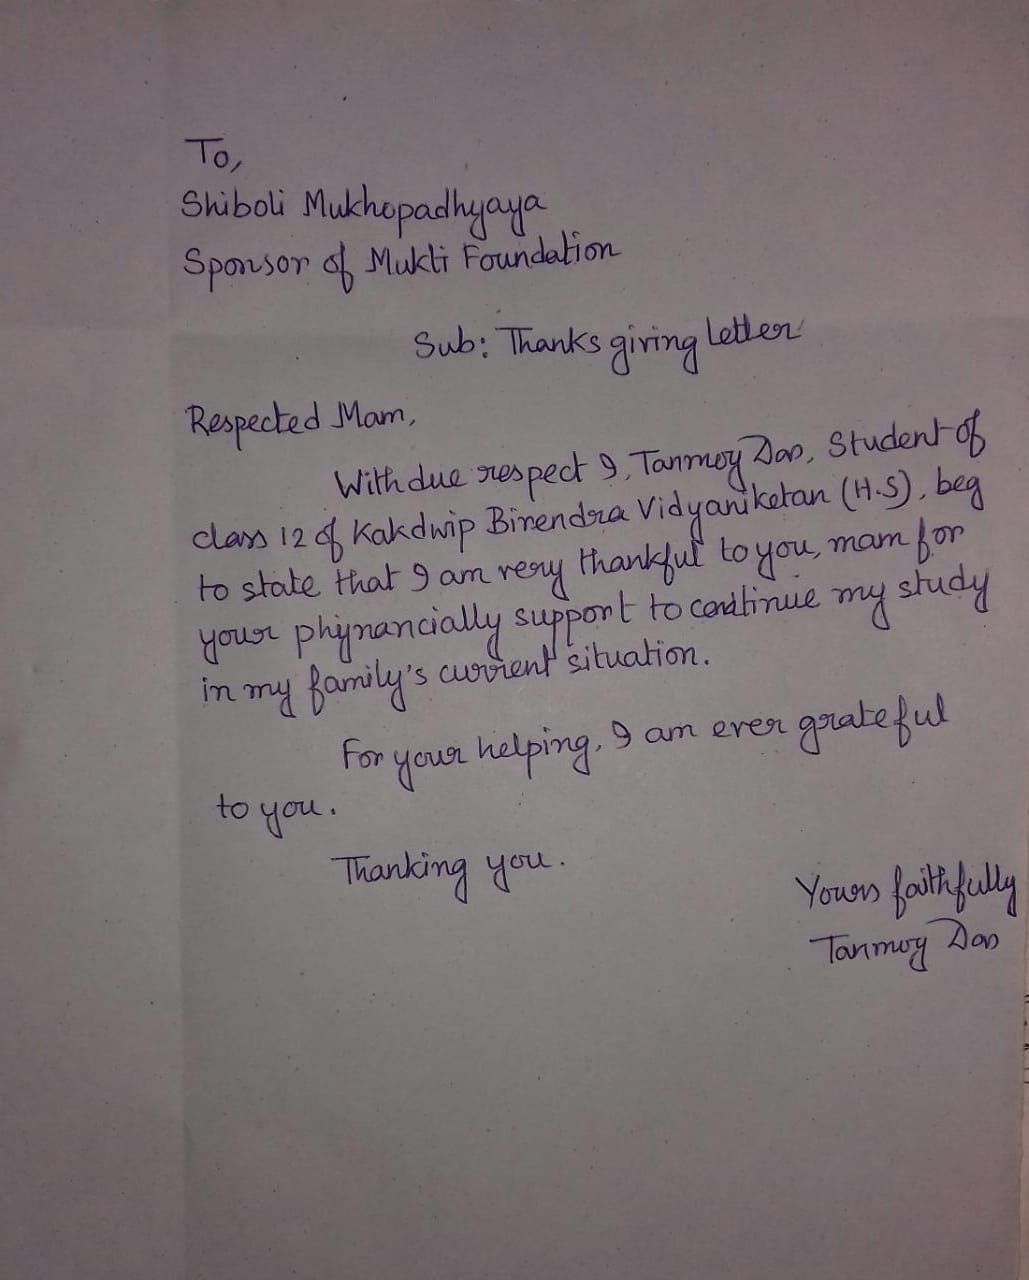 To,
Shiboli Mukhopadhyaya
Sponsor of Mukti Foundation
Sub: Thanks giving Letter
Respected Mam,
With due respect I, Tanmoy Das, Student of
class 12 of Kakdwip Birendra Vidyaniketan (H.S), beg
to state that I am very thankful to you, mam for
your phynancially support to continue my study
in my family's current situation.
For your helping, I am ever grateful
to you.
Thanking you.
Yours faithfully
Tanmoy Das